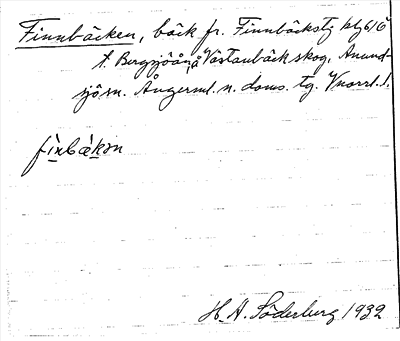 Finnbäcken, bäck fr. Finnbäckstj. blg 616
t. Bergsjöån, å Västanbäck skog, Anund-
sjö sn. Ångerml. n. doms. tg. Vnorrl. l.
fìnbækən
H. A. Söderberg 1932